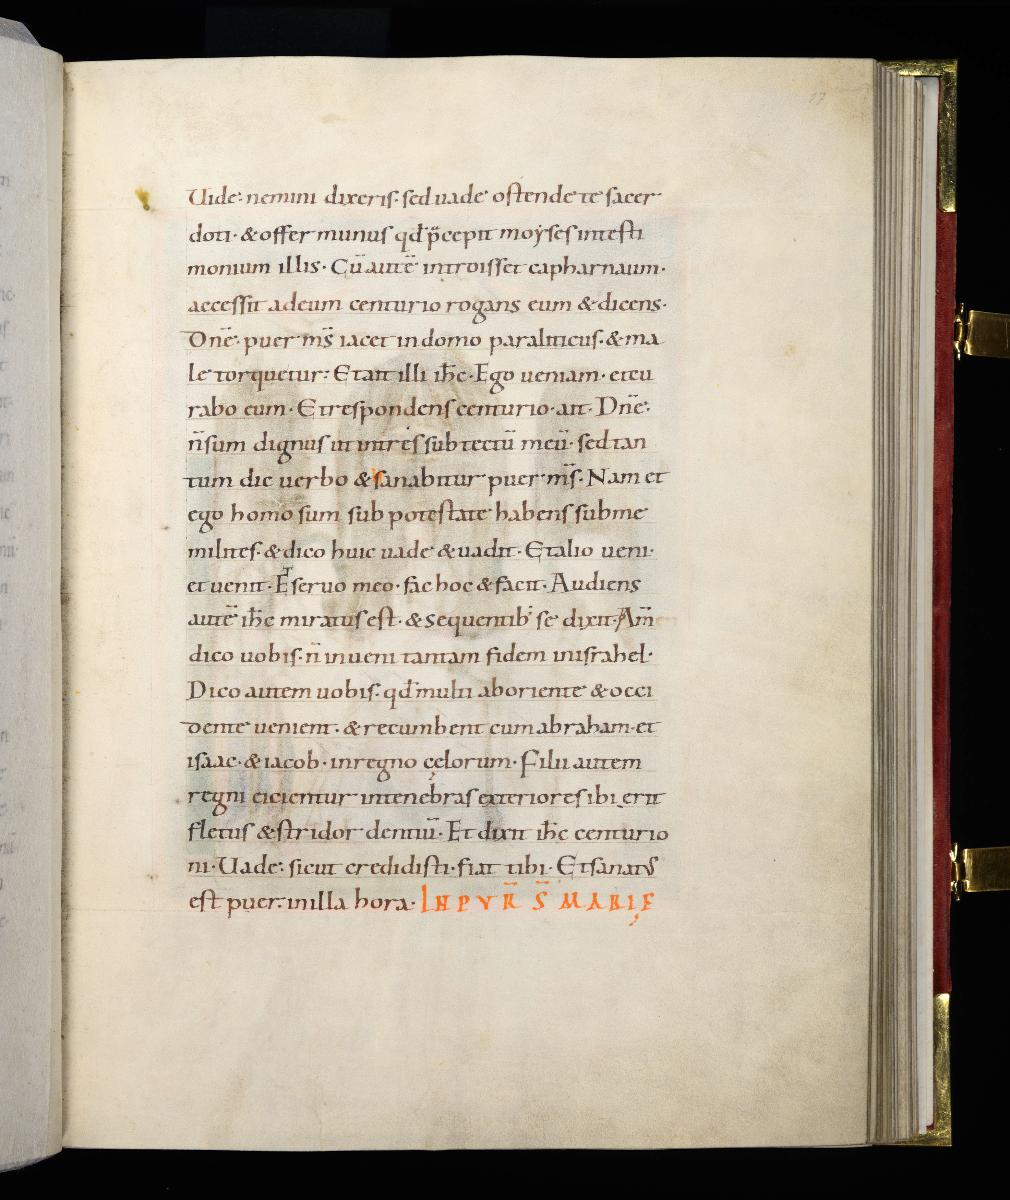 17
Uide· nemini dixeris· sed uade ostende te sacer
doti· & offer munus qđ p̄cepit moẏses in testi
monium illis· Cū autē introisset capharnaum·
accessit ad eum centurio rogans eum & dicens·
Dn̄e· puer ms̄ iacet in domo paraliticus· & ma
le torquetur· Et ait illi ih̄c· Ego ueniam· et cu
rabo eum· Et respondens centurio· ait· Dn̄e·
n̄ sum dignus ut intres sub tectū meū· sed tan
tum dic uerbo & sanabitur puer ms̄· Nam et
ego homo sum sub potestate habens sub me
milites· & dico huic uade & uadit· Et alio ueni·
et uenit· Et seruo meo· fac hoc & facit· Audiens
autē ih̄c miratus est· & sequentib· se dixit· Am̄
dico uobis· n̄ inueni tantam fidem in israhel·
Dico autem uobis· qđ multi ab oriente & occi
dente uenient· & recumbent cum abraham· et
isaac· & iacob· in regno cęlorum· Filii autem
regni eicientur in tenebras exteriores ibi erit
fletus & stridor dentiū· Et dixit ih̄c centurio
ni· Uade· sicut credidisti· fiat tibi· Et sanatus
est puer· in illa hora· IN PVR̄ S̄ MARIĘ